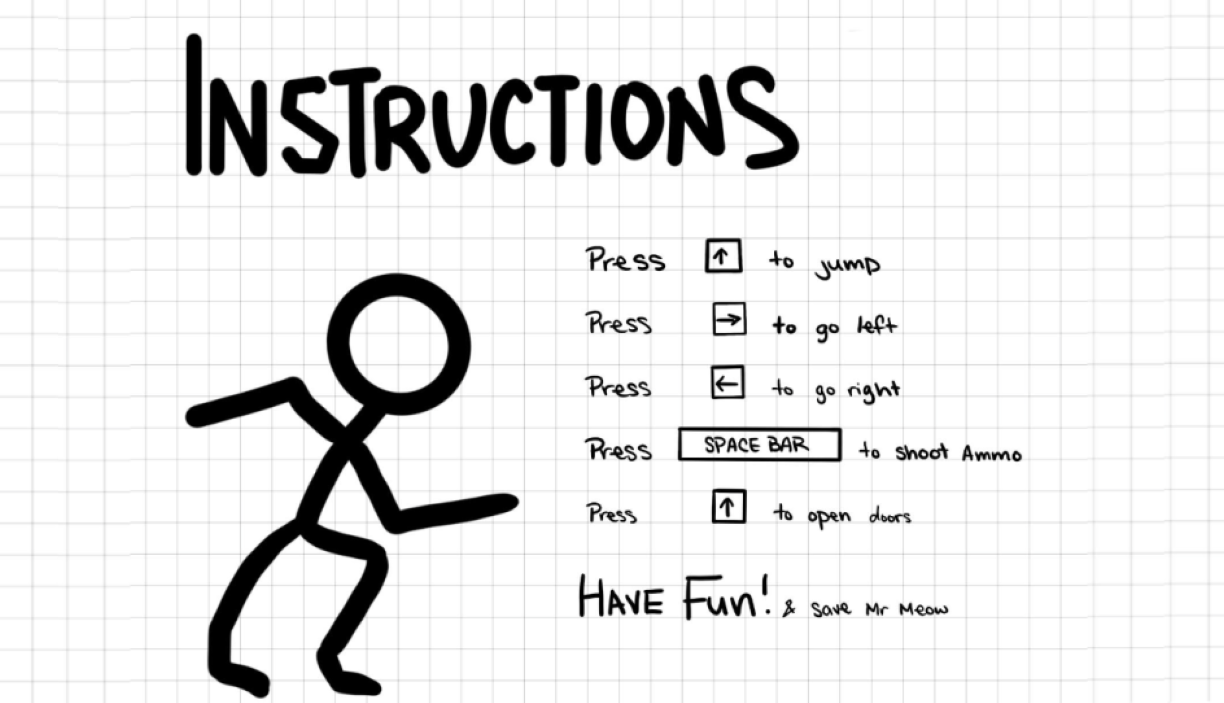 INSTRUCTIONS
Press ↑ to jump
Press → to go left
Press ← to go right
Press SPACE BAR to shoot Ammo
Press ↑ to open doors
HAVE Fun! & save Mr Meow